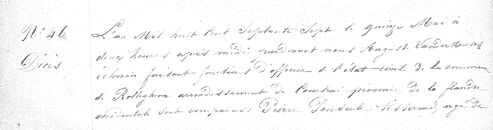 N° 46
Décès
L'an Mil huit Cent Septante Sept le quinze Mai à
deux heures après midi pardevant nous August
échevin faisant fonctions d'officier de l'état civil de la commune
de Rolleghem arrondissement de Courtrai province de la flandre
occidentale sont comparus Pierre tisserand, agé de